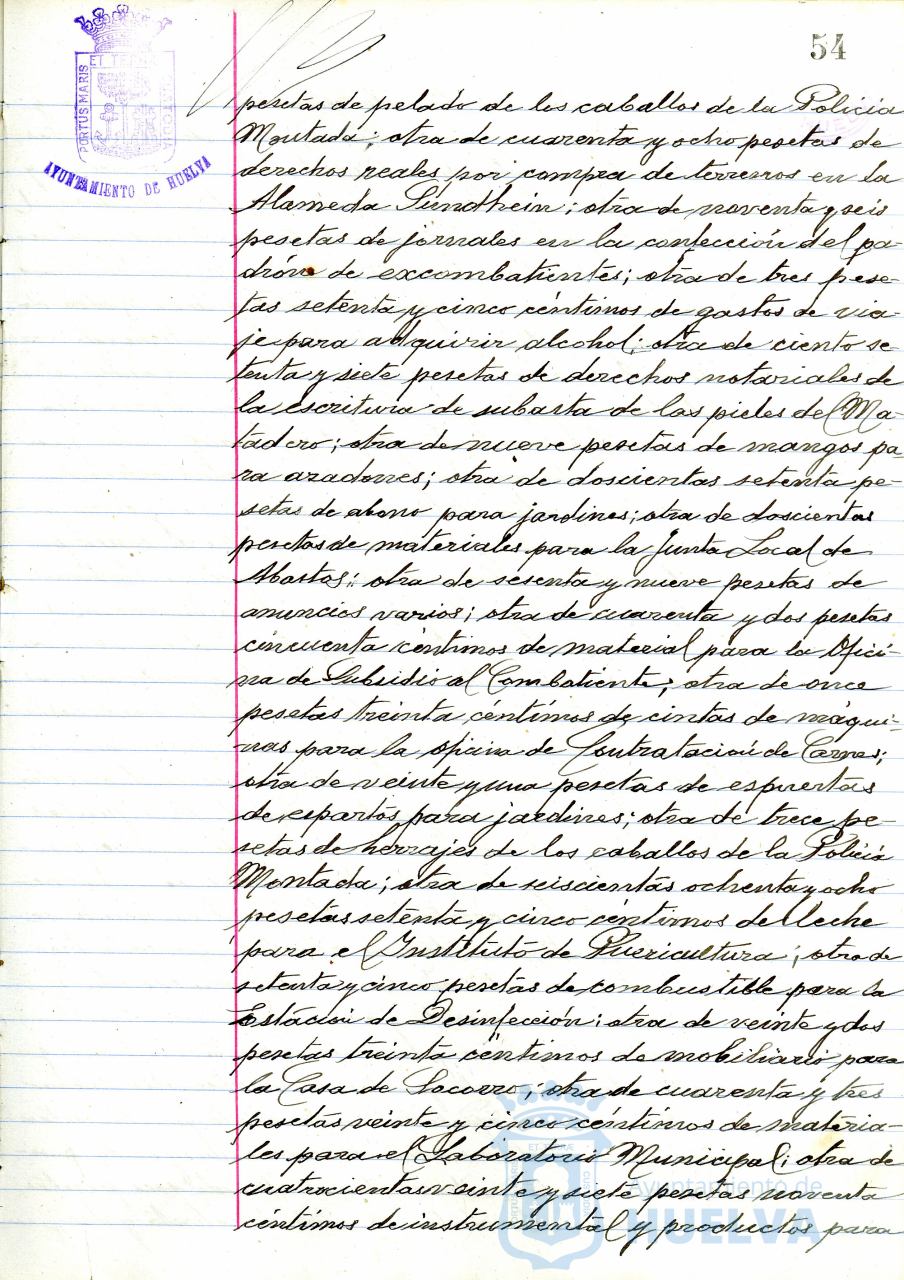 54
ET TERRE
PORTUS MARIS
CUSTODIA
AYUNTAMIENTO DE HUELVA
pesetas de pelado de los caballos de la Policia
Montada; otra de cuarenta y ocho pesetas de
derechos reales por compra de terrenos en la
Alameda Sundhein; otra de noventa y seis
pesetas de jornales en la confección del pa-
drón de excombatientes; otra de tres pese-
tas setenta y cinco céntimos de gastos de via-
je para adquirir alcohol; otra de ciento se-
tenta y siete pesetas de derechos notariales de
la escritura de subasta de las pieles del Ma-
tadero; otra de nueve pesetas de mangos pa-
ra azadones; otra de doscientas setenta pe-
setas de abono para jardines; otra de doscientas
pesetas de materiales para la Junta Local de
Abastos; otra de sesenta y nueve pesetas de
anuncios varios; otra de cuarenta y dos pesetas
cincuenta céntimos de material para la Ofici-
na de Subsidio al Combatiente; otra de once
pesetas treinta céntimos de cintas de máqui-
nas para la oficina de Contratación de Carnes;
otra de veinte y una pesetas de espuertas
de espartos para jardines; otra de trece pe-
setas de herrajes de los caballos de la Policia
Montada; otra de seiscientas ochenta y ocho
pesetas setenta y cinco céntimos de leche
para el Instituto de Puericultura; otra de
setenta y cinco pesetas de combustible para la
Estación de Desinfección; otra de veinte y dos
pesetas treinta céntimos de mobiliario para
la Casa de Socorro; otra de cuarenta y tres
pesetas veinte y cinco céntimos de materia-
les para el Laboratorio Municipal; otra de
cuatrocientas veinte y siete pesetas noventa
céntimos de instrumental y productos para
Ayuntamiento de
HUELVA